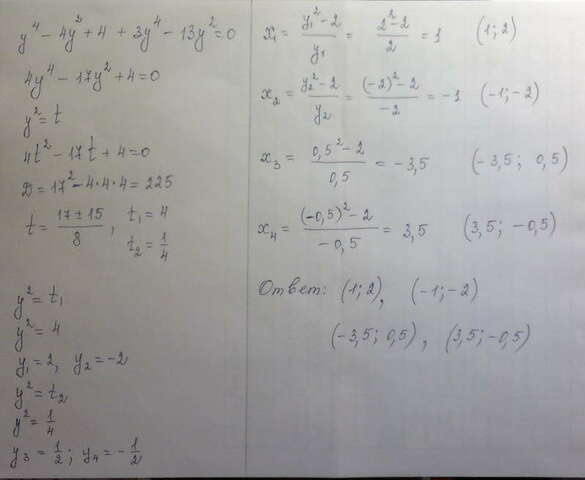 y⁴ - 4y² + 4 + 3y⁴ - 13y² = 0
4y⁴ - 17y² + 4 = 0
y² = t
4t² - 17t + 4 = 0
D = 17² - 4·4·4 = 225
t = (17 ± 15)/8 , t₁ = 4
t₂ = 1/4
y² = t₁
y² = 4
y₁ = 2, y₂ = -2
y² = t₂
y² = 1/4
y₃ = 1/2; y₄ = -1/2
x₁ = (y₁² - 2)/y₁ = (2² - 2)/2 = 1 (1; 2)
x₂ = (y₂² - 2)/y₂ = ((-2)² - 2)/-2 = -1 (-1; -2)
x₃ = (0,5² - 2)/0,5 = -3,5 (-3,5; 0,5)
x₄ = ((-0,5)² - 2)/-0,5 = 3,5 (3,5; -0,5)
Ответ: (1; 2), (-1; -2)
(-3,5; 0,5), (3,5; -0,5)